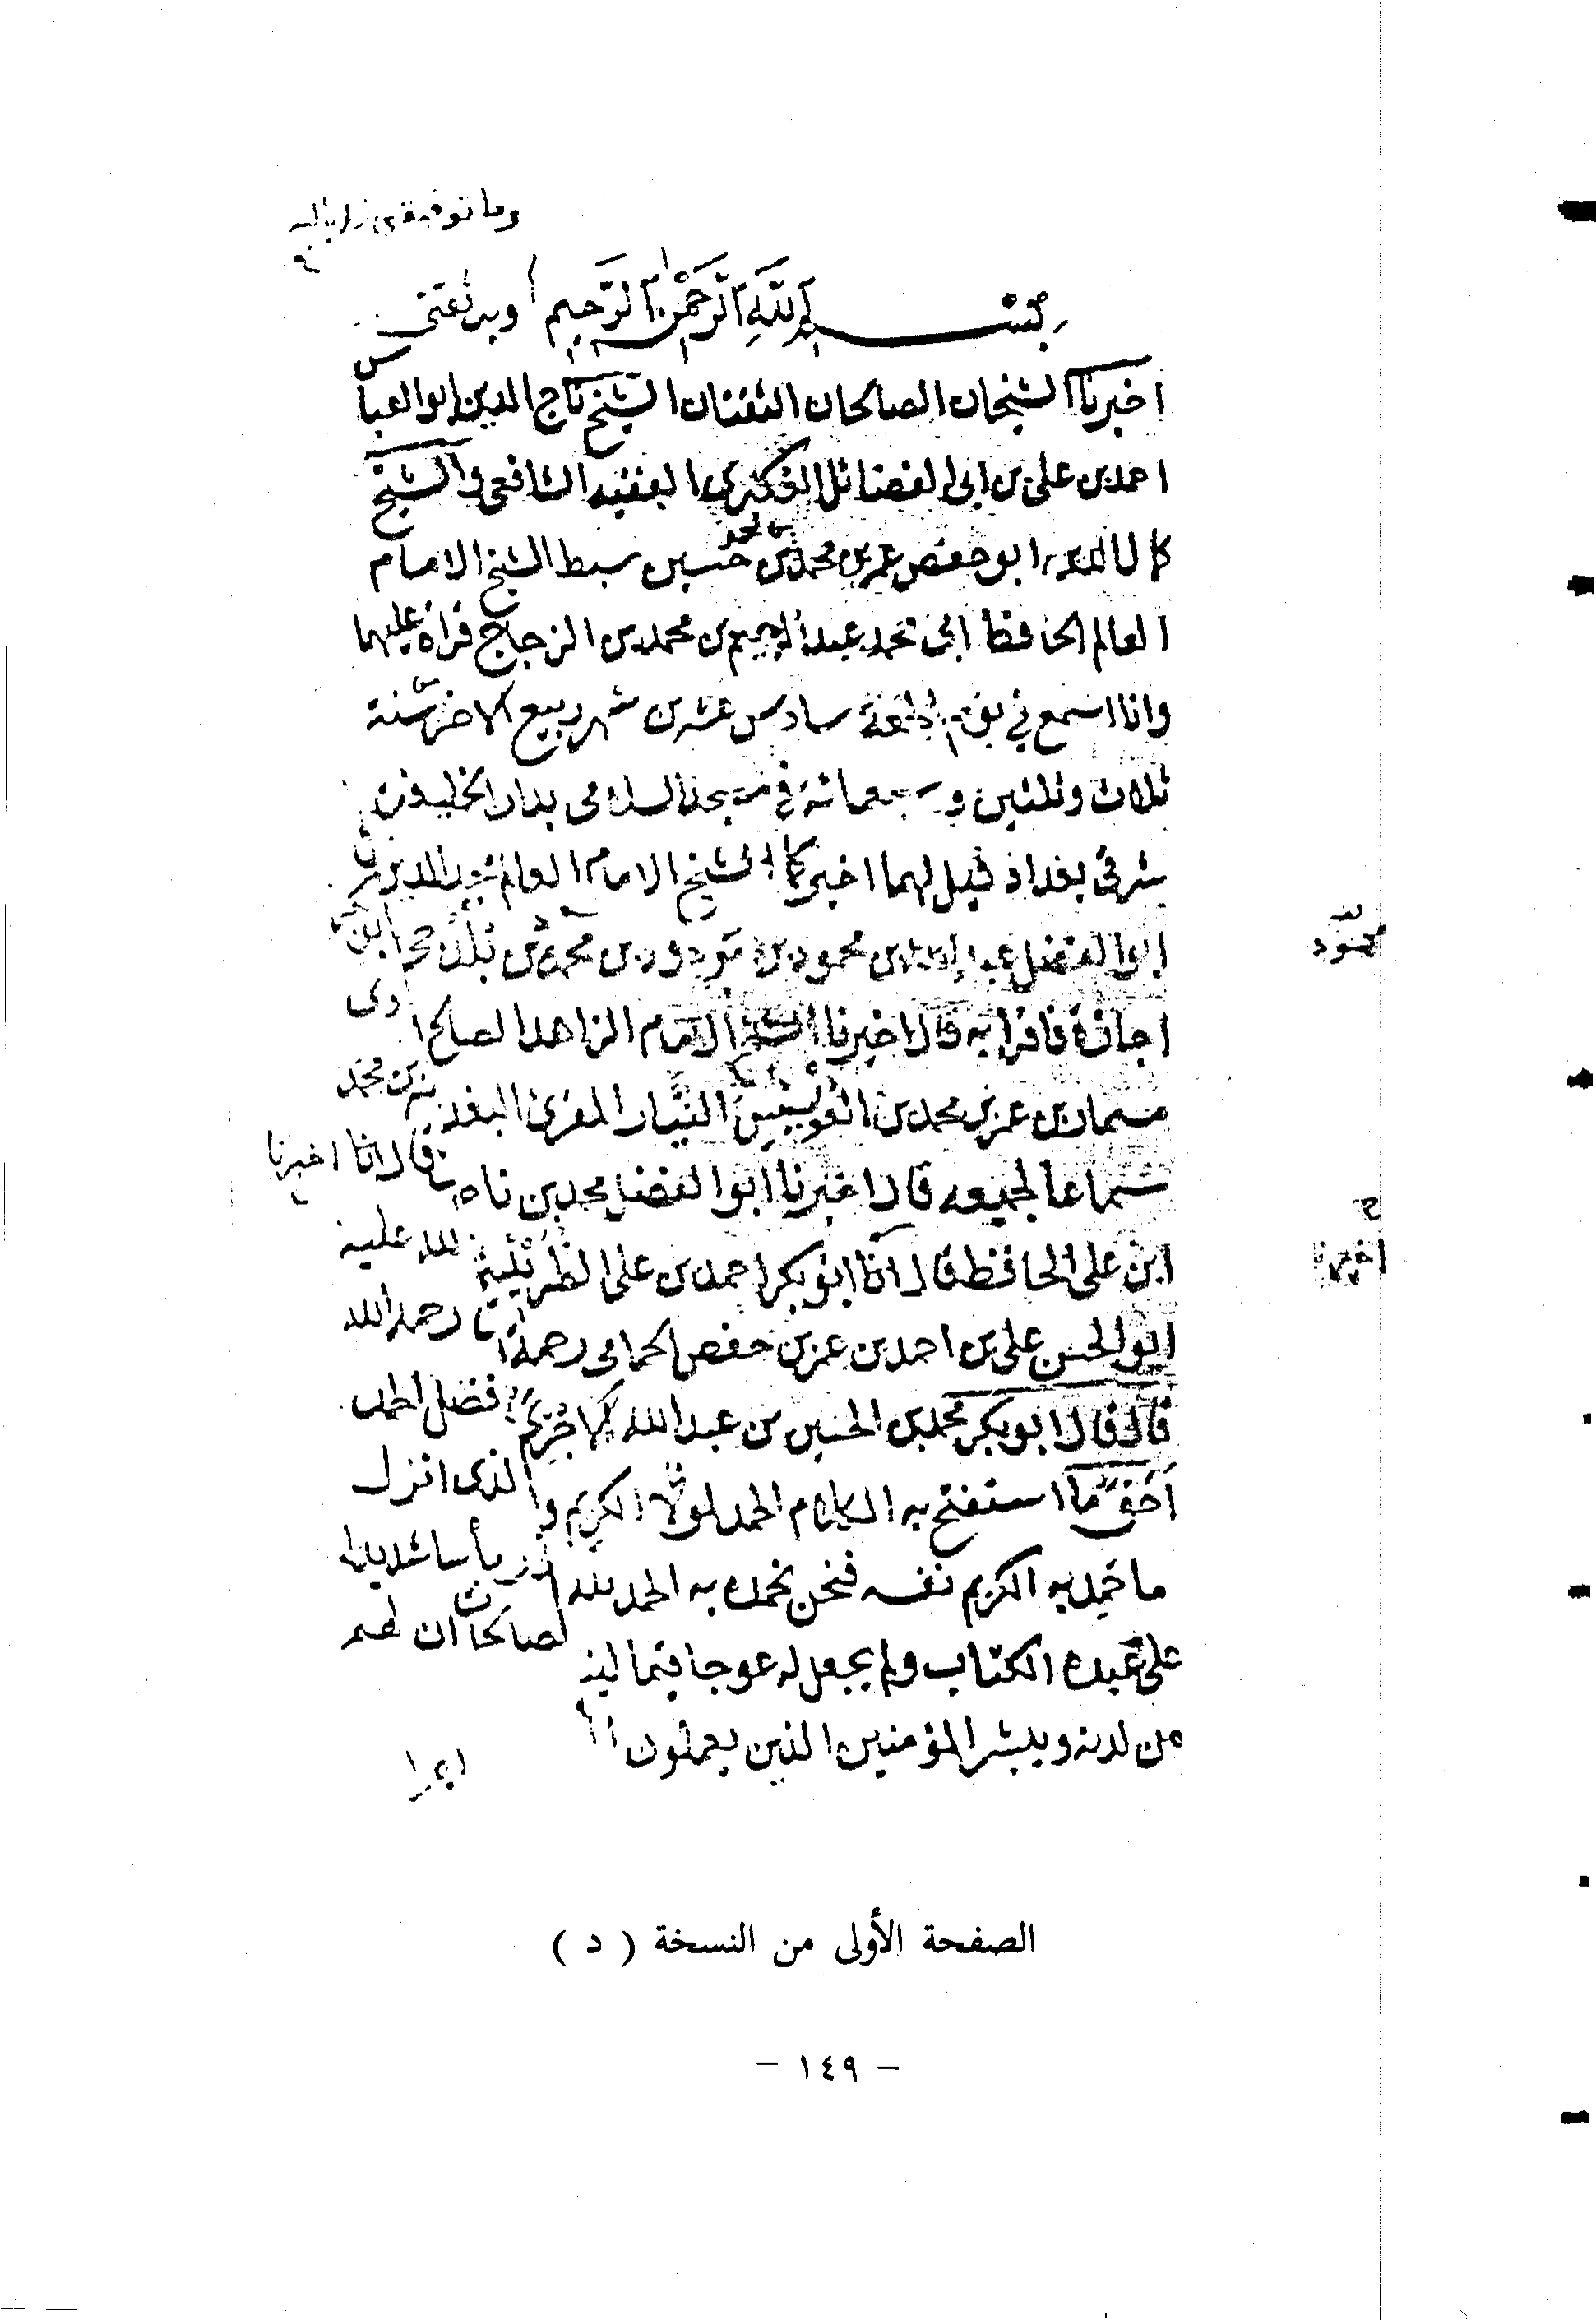 وما توفيقي إلا بالله
بسم الله الرحمن الرحيم وبه ثقتي
اخبرنا الشيخان الصالحان الثقتان الشيخ تاج الدين ابو العباس
احمد بن علي بن ابي الفضائل الفقيه الشافعي والشيخ
كمال الدين ابو حفص عمر بن محمد بن حسين سبط الشيخ الامام
العالم الحافظ ابي محمد عبد الرحيم بن محمد بن الزجاج قراة عليهما
وانا اسمع في يوم الجمعة سادس عشرين شهر ربيع الاخر سنة
ثلاث وثلثين وسبعمائة في مسجد السلامي بدار الخليفة
شرقي بغداد قيل لهما اخبركما الشيخ الامام العالم مجد الدين
ابو الفضل عبد الله بن محمود بن مودود بن محمود بن بلدجي
اجازة فاقرا به قال اخبرنا الشيخ الامام الزاهد الصالح
مسمار بن عمر بن محمد بن العويس النيار المقرئ البغدادي
سماعا لجميعه قال اخبرنا ابو الفضل محمد بن ناصر بن محمد
ابن علي الحافظ قال انا ابو بكر احمد بن علي الطريثيثي قال انا اخبرنا
ابو الحسن علي بن احمد بن عمر بن حفص الحمامي رحمة الله عليه
قال قال ابو بكر محمد بن الحسين بن عبد الله الاجري رحمه الله
احق ما استفتح به الكلام الحمد لمولانا الكريم وافضل الحمد
ما حمد به الكريم نفسه فنحن نحمده به الحمد لله الذي انزل
على عبده الكتاب ولم يجعل له عوجا قيما لينذر بأسا شديدا
من لدنه ويبشر المؤمنين الذين يعملون الصالحات ان لهم
اجرا
محمود
اخبرنا
الصفحة الأولى من النسخة ( د )
- ١٤٩ -